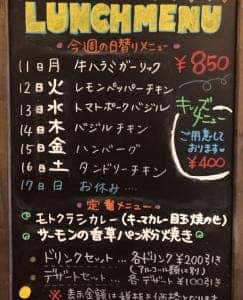 LUNCH MENU
今週の日替りメニュー
11日 月 牛ハラミガーリック ¥850
12日 火 レモンペッパーチキン
13日 水 トマトポークバジル
14日 木 バジルチキン
15日 金 ハンバーグ
16日 土 タンドリーチキン
17日 日 お休み....
キッズメニュー
ご用意して
おります
¥400
定番メニュー
モトクラシカレー(キーマカレー目玉焼のせ)
サーモンの香草パン粉焼き
ドリンクセット... 各ドリンク ¥200引き
(アルコール類は別)
デザートセット... 各デザート ¥100引き
※ 表示金額は税抜き価格となります